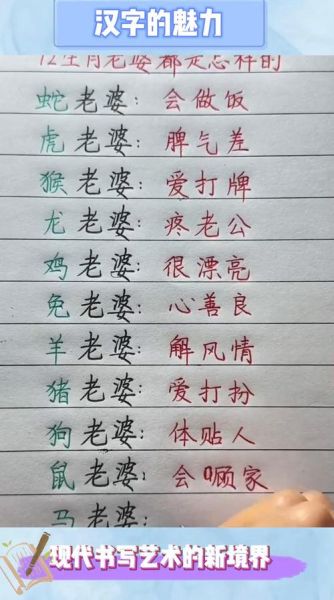 汉字的魅力
12生肖老婆都是怎样的
蛇老婆：会做饭
虎老婆：脾气差
猴老婆：爱打牌
龙老婆：疼老公
鸡老婆：很漂亮
兔老婆：心善良
羊老婆：解风情
猪老婆：爱打扮
狗老婆：体贴人
鼠老婆：会顾家
马老婆：
现代书写艺术的新境界